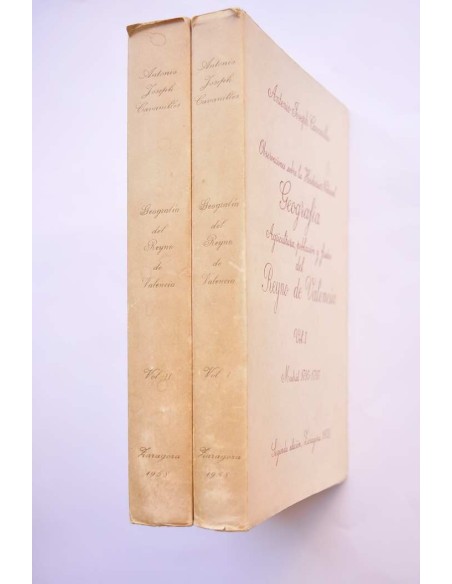 Antonio
Joseph
Cavanilles
Geografia
del
Reyno
de
Valencia
Vol. II
Zaragoza
1958
Antonio
Joseph
Cavanilles
Geografia
del
Reyno
de
Valencia
Vol. I
Zaragoza
1958
Antonio Joseph Cavanilles
Observaciones sobre la Historia Natural
Geografia
Agricultura, poblacion y frutos
del
Reyno de Valencia
Vol. I
Madrid 1795-1797
Segunda edición, Zaragoza 1958